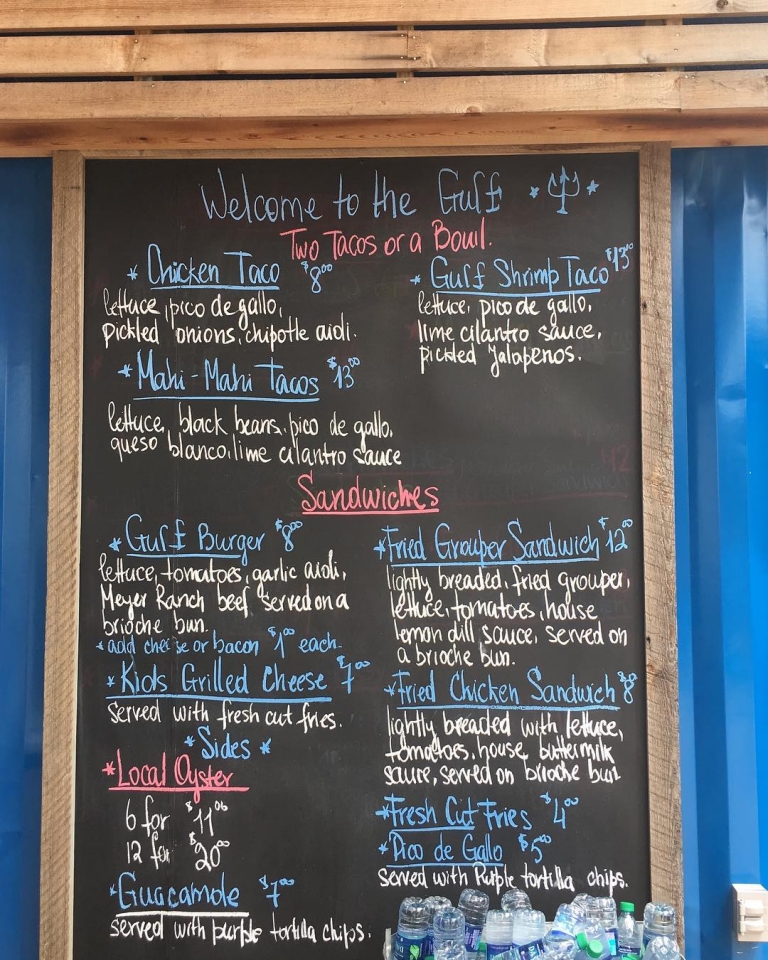 Welcome to the Gulf
Two Tacos or a Bowl.
* Chicken Taco $8.00
lettuce, pico de gallo,
pickled onions, chipotle aioli.
* Gulf Shrimp Taco $13.00
lettuce, pico de gallo,
lime cilantro sauce,
pickled Jalapenos.
* Mahi-Mahi Tacos $13.00
lettuce, black beans, pico de gallo,
queso blanco, lime cilantro sauce
Sandwiches
* Gulf Burger $8.00
lettuce, tomatoes, garlic aioli,
Meyer Ranch beef served on a
brioche bun.
* add cheese or bacon $1.00 each.
* Kids Grilled Cheese $7.00
Served with fresh cut fries.
* Fried Grouper Sandwich $12.00
lightly breaded, fried grouper,
lettuce, tomatoes, house
lemon dill sauce, served on
a brioche bun.
* Fried Chicken Sandwich $8
lightly breaded with lettuce,
tomatoes, house buttermilk
sauce, served on brioche bun
* Sides *
* Local Oyster
6 for $11.00
12 for $20.00
* Guacamole $7.00
served with purple tortilla chips.
* Fresh Cut Fries $4.00
* Pico de Gallo $5.00
served with Purple tortilla chips.